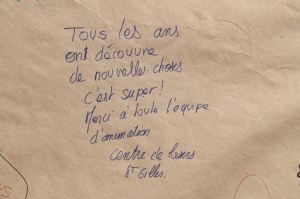 Tous les ans
ont découvre
de nouvelles choses
c'est super!
Merci à toute l'équipe
d'animation
centre de loisirs
St Gilles.